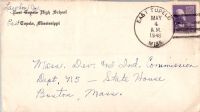 East Tupelo High School
East Tupelo, Mississippi
EAST TUPELO
MAY
4
A.M.
1948
MISS.
Mass. Dev. and Ind. Commission
Dept, 915 - State House
Boston, Mass.